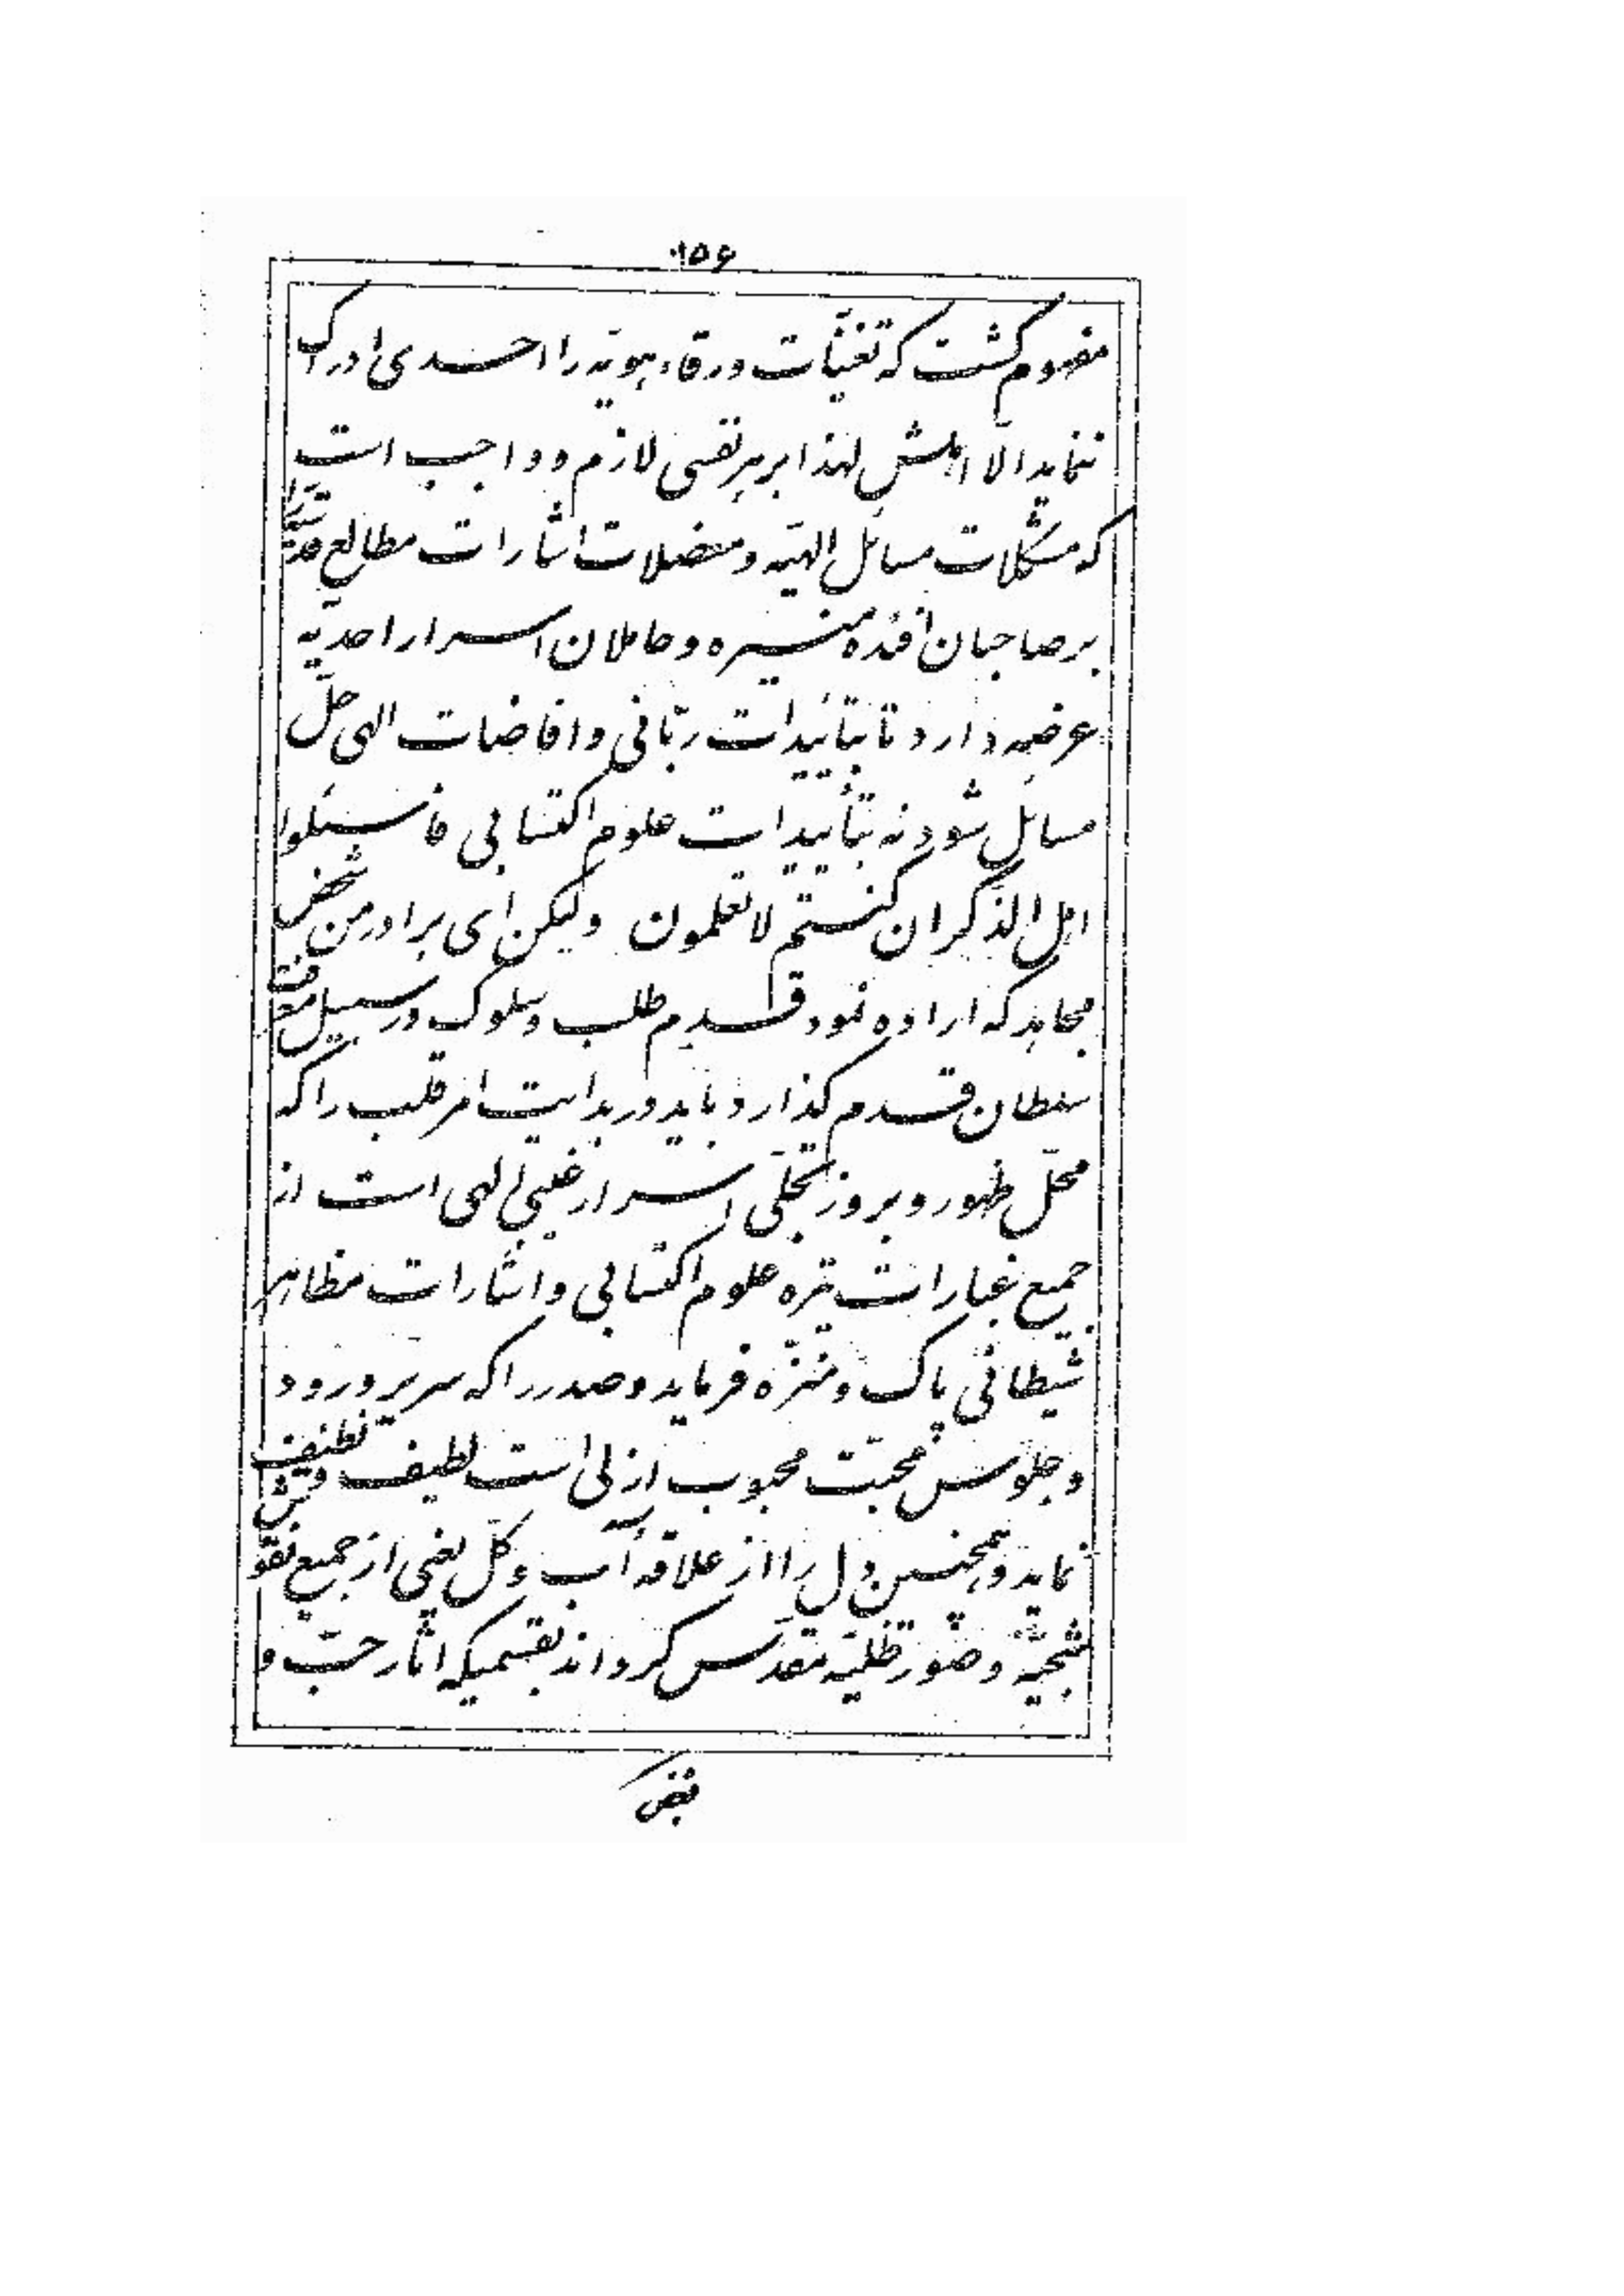 ۱۵۶
مفهوم گشت که تغنّیات ورقاء هویّه را احدی ادراک
ننماید الّا اهلش لهذا بر هر نفسی لازم و واجب است
که مشکلات مسائل الهیّه و معضلات اشارات مطالع قدسیّه را
بر صاحبان افئدهٔ منیره و حاملان اسرار احدیّه
عرضه دارد تا بتائیدات ربّانی و افاضات الهی حلّ
مسائل شود نه بتأییدات علوم اکتسابی فاسئلوا
اهل الذّکر ان کنتم لا تعلمون ولیکن ای برادر من شخص
مجاهد که اراده نمود قدم طلب و سلوک در سبیل معرفت
سلطان قدم گذارد باید در بدایت امر قلب را که
محلّ ظهور و بروز تجلّی اسرار غیبی الهی است از
جمیع غبارات تیره علوم اکتسابی و اشارات مظاهر
شیطانی پاک و منزّه فرماید و صدر را که سریر ورود
و جلوس محبّت محبوب ازلی است لطیف و نظیف
نماید و همچنین دل را از علاقه آب و گل یعنی از جمیع نقوش
شبحیّه و صور ظلّیّه مقدّس گرداند بقسمیکه آثار حبّ و
بغض